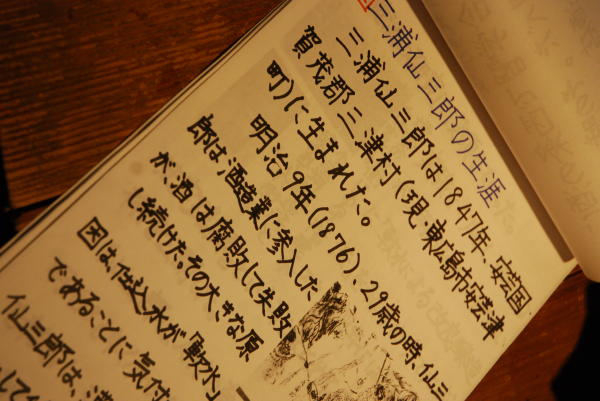 三浦仙三郎の生涯
三浦仙三郎は1847年、安芸国
賀茂郡三津村(現、東広島市安芸津
町)に生まれた。
明治9年(1876)、29歳の時、仙三
郎は酒造業に参入した
が、酒は腐敗して失敗
し続けた。その大きな原
因は、仕込水が「軟水」
であることに気付
仙三郎は、
して